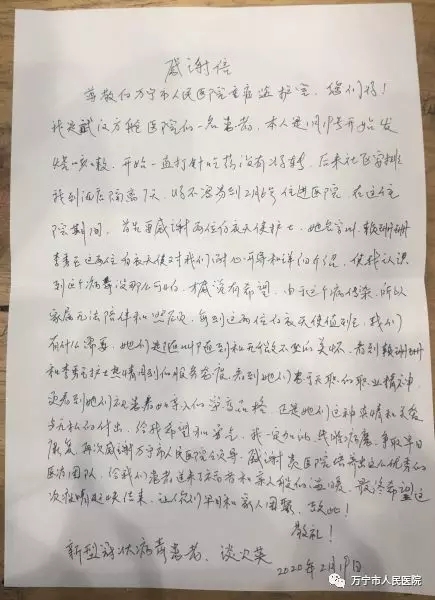 感谢信
尊敬的万宁市人民医院重症监护室,您们好!
我是武汉方舱医院的一名患者,本人是1月19号开始发
烧咳嗽,开始一直打针吃药没有好转,后来社区安排
我到酒店隔离7天,2月6号住进医院,在这住
院期间,首先要感谢两位白衣天使护士,她名字叫,
这两位白衣天使对我们耐心开导和详细介绍,使我认识
到这个病毒没那么可怕,才感觉有希望,由于这个病传染,所以
家属无法陪伴和照顾,每到这两位白衣天使值班,我们
有什么需要,她们是随叫随到和无微不至的关怀,看到
和护士热情周到的服务态度,看到她们忠于天职的职业精神,
更看到她们视患者如亲人的崇高品格,还是她们这种真情和关爱
与无私的付出,给我希望和勇气,我一定加油,战胜病魔,争取早日
康复,再次感谢万宁市人民医院全领导,感谢贵医院培养出这么优秀的
医治团队,给我们患者送来了和亲人般的温暖,最后希望这
次疫情尽快结束,让你们早日和家人团聚,致此!
敬礼!
新型冠状病毒患者,谈次英
2020年2月19日
万宁市人民医院